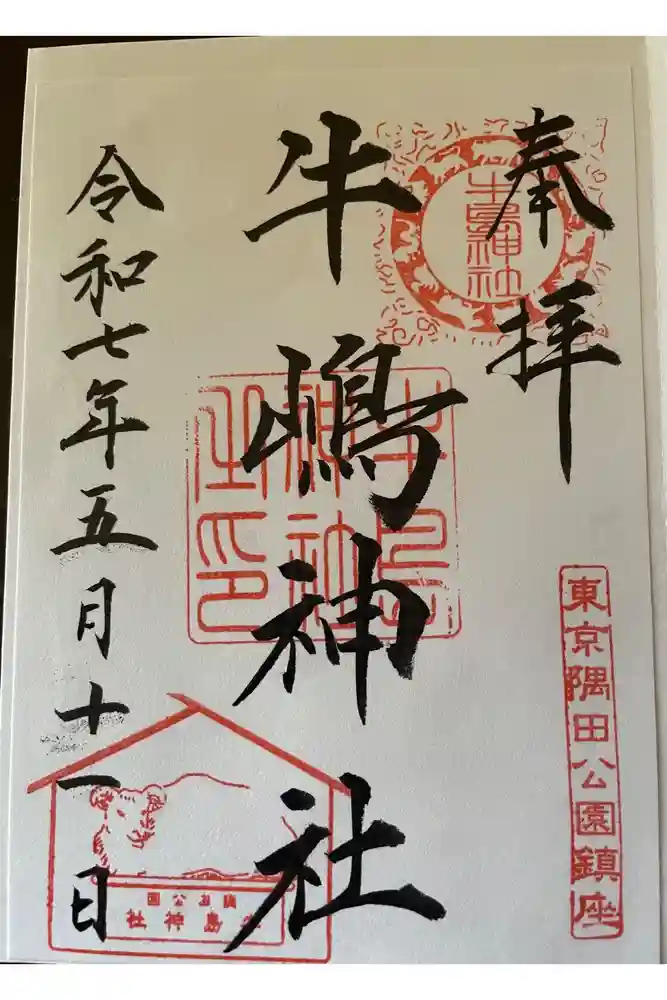 奉拝
牛嶋神社
令和七年五月十一日
牛島神社
牛島神社之印
東京隅田公園鎮座
隅田公園
牛島神社